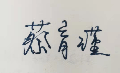 蔡育瑾